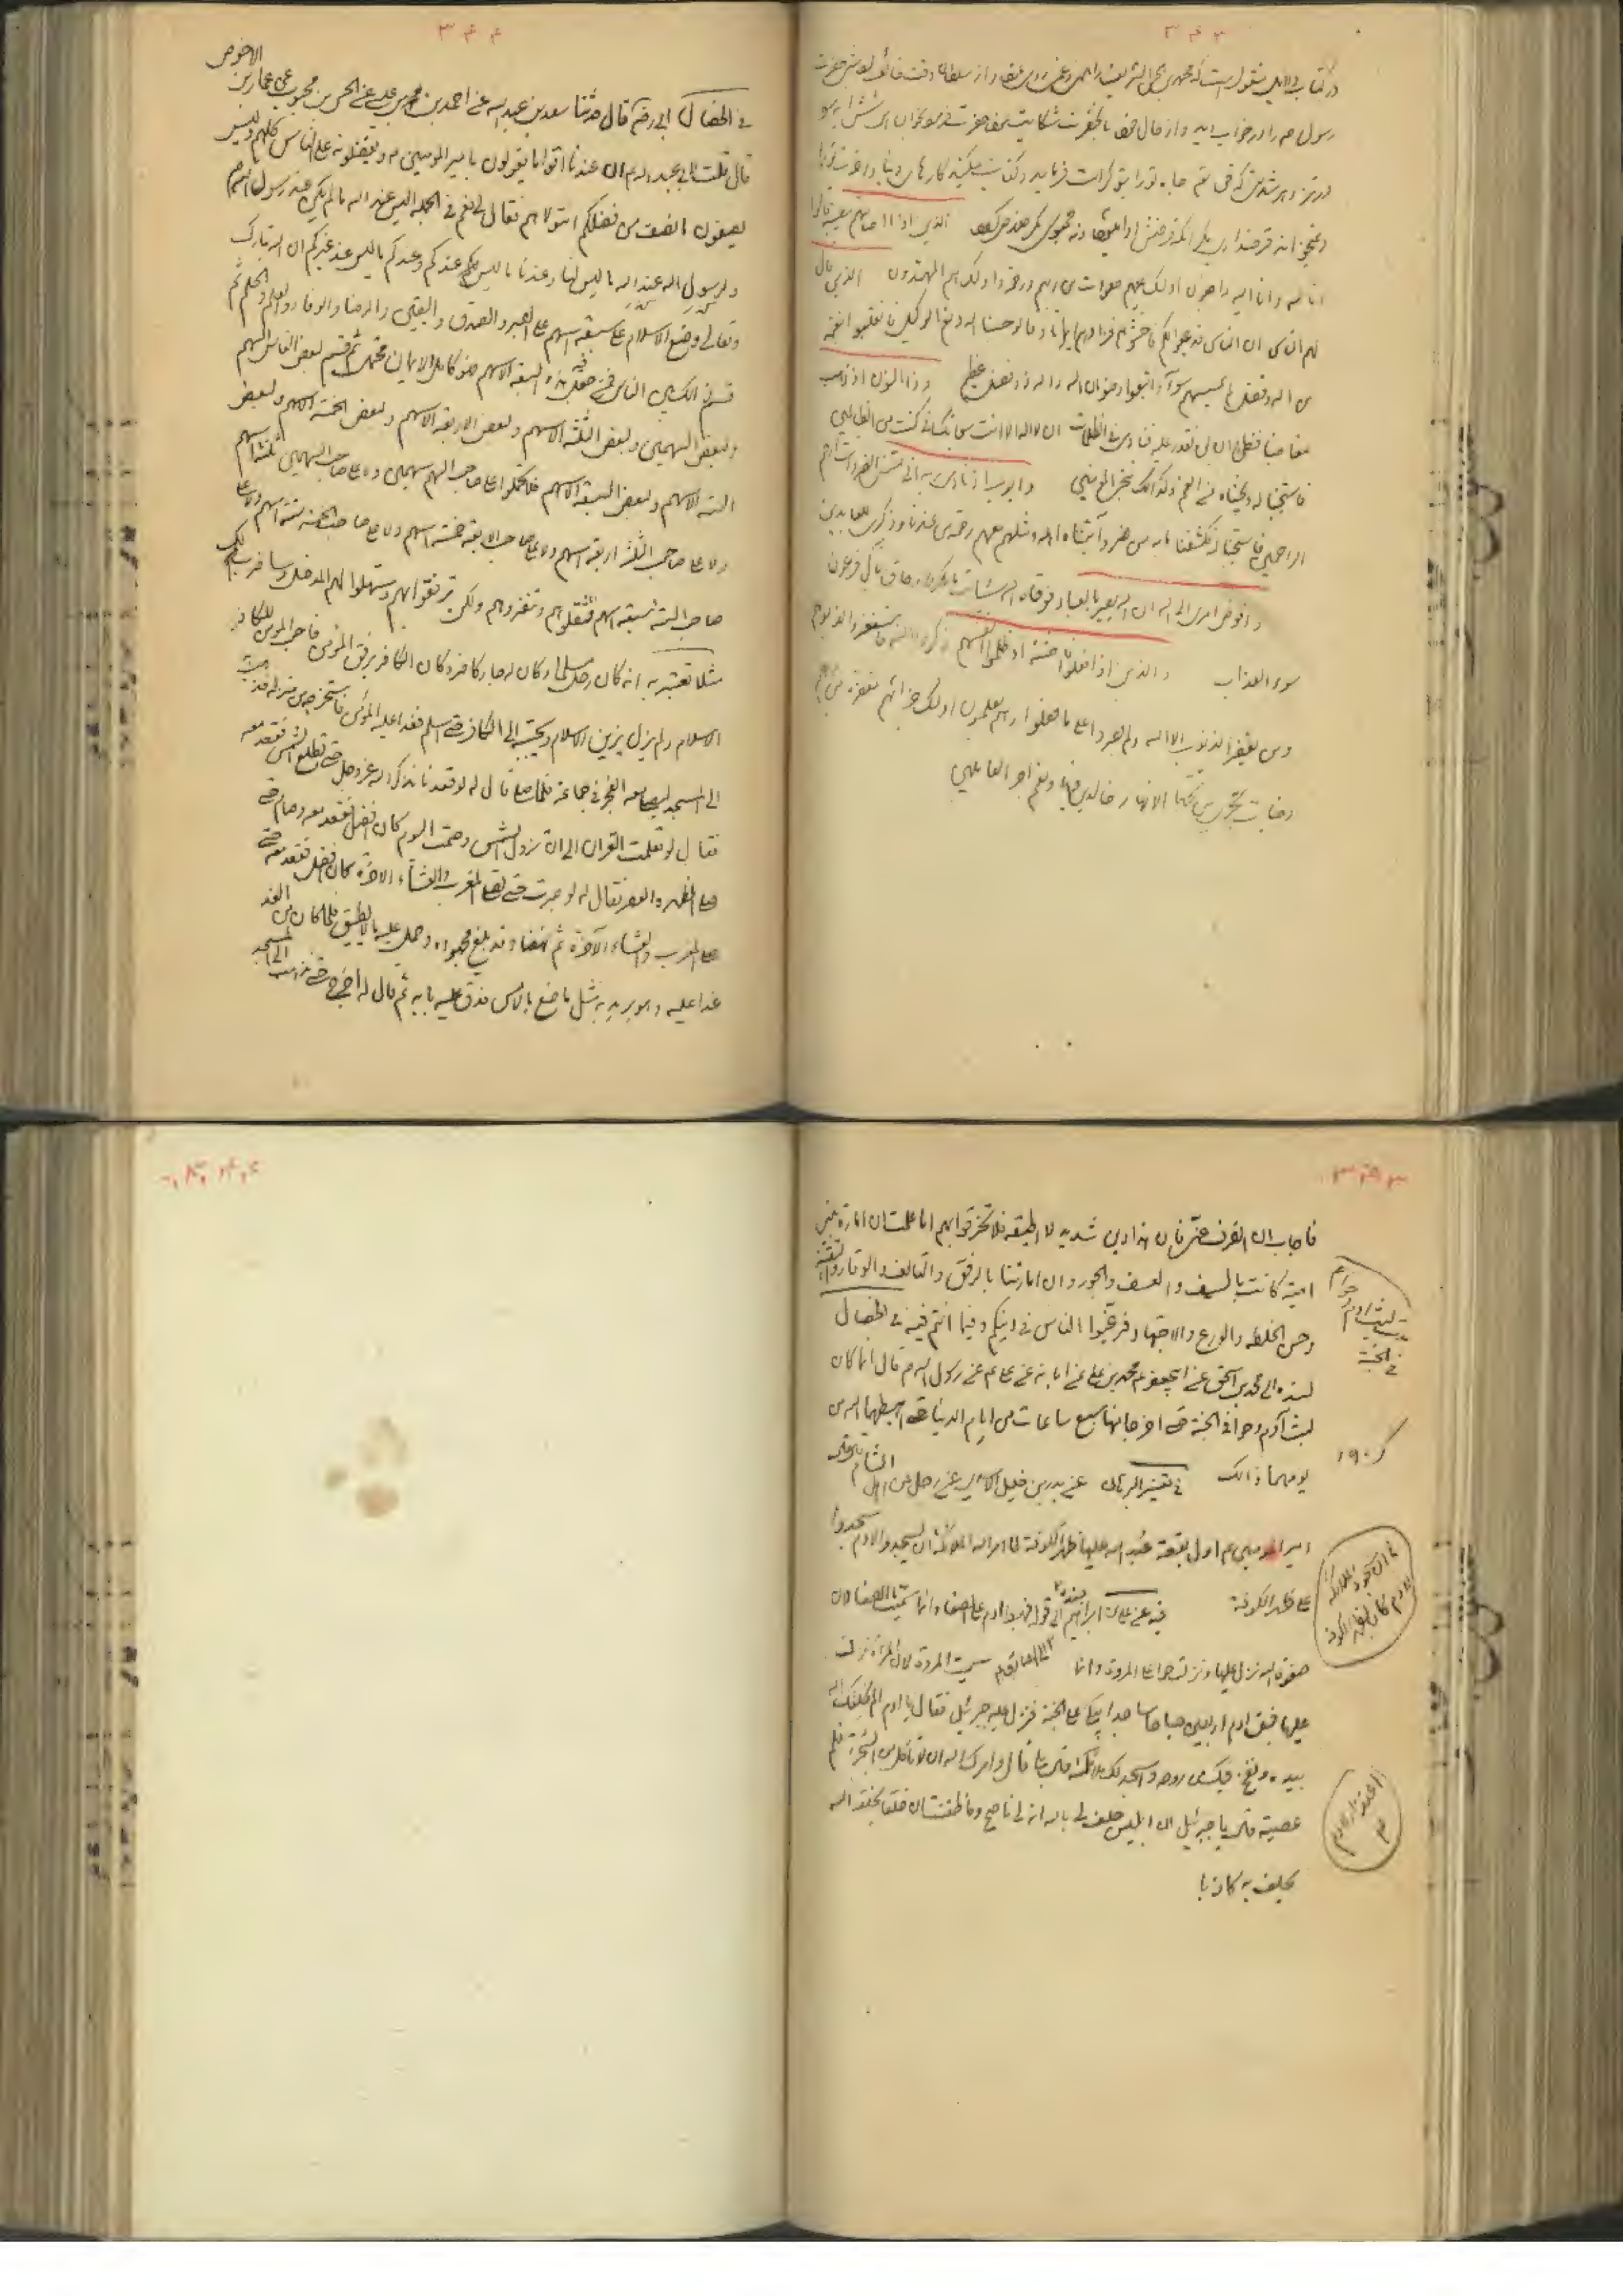 ۳۴۳
رسول ص را در خواب دید و از حال خود بانحضرت شکایت نمود حضرت فرمود بخوان این شش آیه
الذین اذا اصابتهم مصیبة قالوا
انا لله و انا الیه راجعون اولئک علیهم صلوات من ربهم و رحمة و اولئک هم المهتدون الذین قال
لهم الناس ان الناس قد جمعوا لکم فاخشوهم فزادهم ایمانا و قالوا حسبنا الله و نعم الوکیل فانقلبوا بنعمة
من الله و فضل لم یمسسهم سوء و اتبعوا رضوان الله و الله ذو فضل عظیم و ذا النون اذ ذهب
مغاضبا فظن ان لن نقدر علیه فنادی فی الظلمات ان لا اله الا انت سبحانک انی کنت من الظالمین
فاستجبنا له و نجیناه من الغم و کذلک ننجی المؤمنین و ایوب اذ نادی ربه انی مسنی الضر و انت ارحم
الراحمین فاستجبنا له فکشفنا ما به من ضر و آتیناه اهله و مثلهم معهم رحمة من عندنا و ذکری للعابدین
و افوض امری الی الله ان الله بصیر بالعباد فوقاه الله سیئات ما مکروا و حاق بآل فرعون
سوء العذاب و الذین اذا فعلوا فاحشة او ظلموا انفسهم ذکروا الله فاستغفروا لذنوبهم
و من یغفر الذنوب الا الله و لم یصروا علی ما فعلوا و هم یعلمون اولئک جزائهم مغفرة من ربهم
و جنات تجری من تحتها الانهار خالدین فیها و نعم اجر العاملین
۳۴۴
فی الخصال ابی رضه قال حدثنا سعد بن عبد الله عن احمد بن محمد بن عیسی عن الحسن بن محبوب عن عمار بن
الاحوص
قال قلت لابی عبد الله ع ان عندنا اقواما یقولون بامیر المومنین ع و یفضلونه علی الناس کلهم و لیس
یصفون ما نصف من فضلکم انتولاهم فقال لی نعم فی الجملة الیس عند الله ما لم یکن عند رسول الله ص
و لرسول الله عند الله ما لیس لنا و عندنا ما لیس عندکم و عندکم ما لیس عند غیرکم ان الله تبارک
و تعالی وضع الاسلام علی سبعة اسهم علی الصبر و الصدق و الیقین و الرضا و الوفاء و العلم و الحلم ثم
قسم ذلک بین الناس فمن جعل فیه هذه السبعة الاسهم فهو کامل الایمان محتمل ثم قسم لبعض الناس السهم
و لبعض السهمین و لبعض الثلثة الاسهم و لبعض الاربعة الاسهم و لبعض الخمسة الاسهم و لبعض
الستة الاسهم و لبعض السبعة الاسهم فلا تحملوا علی صاحب السهم سهمین و لا علی صاحب السهمین ثلثة اسهم
و لا علی صاحب الثلثة اربعة اسهم و لا علی صاحب الاربعة خمسة اسهم و لا علی صاحب الخمسة ستة اسهم و لا علی
صاحب الستة سبعة اسهم فتثقلوهم و تنفروهم و لکن ترفقوا بهم و سهلوا لهم المدخل و ساضرب لک
مثلا تعتبر به انه کان رجل مسلم و کان له جار کافر و کان الکافر یرفق المؤمن فاحب المومن للکافر
الاسلام و لم یزل یزین الاسلام و یحببه الی الکافر حتی اسلم فغدا علیه المؤمن فاستخرجه من منزله فذهب به
الی المسجد لیصلی معه الفجر فی جماعة فلما صلی قال له لو قعدنا نذکر الله عز و جل حتی تطلع الشمس فقعد معه
فقال لو تعلمت القران الی ان تزول الشمس و صمت الیوم کان افضل فقعد معه و صام حتی
صلی الظهر و العصر فقال له لو صبرت حتی تصلی المغرب و العشاء الاخرة کان افضل فقعد معه حتی
صلی المغرب و العشاء الآخرة ثم نهضا و قد بلغ مجهوده و حمل علیه ما لا یطیق فلما کان من الغد
غدا علیه و هو یرید به مثل ما صنع بالامس فدق علیه بابه ثم قال له اخرج حتی نذهب الی المسجد
فاجابه ان انصرف عنی فان هذا دین شدید لا اطیقه فلا تخرقوا بهم اما علمت ان امارة بنی
امیة کانت بالسیف و العسف و الجور و ان امارتنا بالرفق و التالف و الوقار و التقیة
و حسن الخلطة و الورع و الاجتهاد فرغبوا الناس فی دینکم و فیما انتم فیه فی الخصال
بسنده الی محمد بن اسحق عن ابی جعفر محمد بن علی عن آبائه عن علی ع عن رسول الله ص قال انما کان
لبث آدم و حوا فی الجنة حتی اخرجا منها سبع ساعات من ایام الدنیا حتی اهبطهما الله من
یومهما ذلک فی تفسیر البرهان عن بدر بن خلیل الاسدی عن رجل من اهل الشام قال قال
امیر المومنین ع اول بقعة عبد الله علیها ظهر الکوفة لما امر الله الملائکة ان یسجدوا لادم سجدوا
علی ظهر الکوفة فیه عن علی بن ابراهیم الی قوله فهبط ادم علی الصفا و انما سمیت الصفا لان
صفوة الله نزل علیها و نزلت حوا علی المروة و انما سمیت المروة لان المرأة نزلت
علیها فبقی ادم اربعین صباحا ساجدا یبکی علی الجنة فنزل علیه جبرئیل فقال یا ادم الم یخلقک الله
بیده و نفخ فیک من روحه و اسجد لک ملائکته قال بلی قال و امرک الله ان لا تاکل من الشجرة فلم
عصیته قال یا جبرئیل ان ابلیس حلف لی بالله انه لی ناصح و ما ظننت ان خلقا یخلقه الله
یحلف به کاذبا
لبث ادم و حوا
فی الجنة
۱۹۰